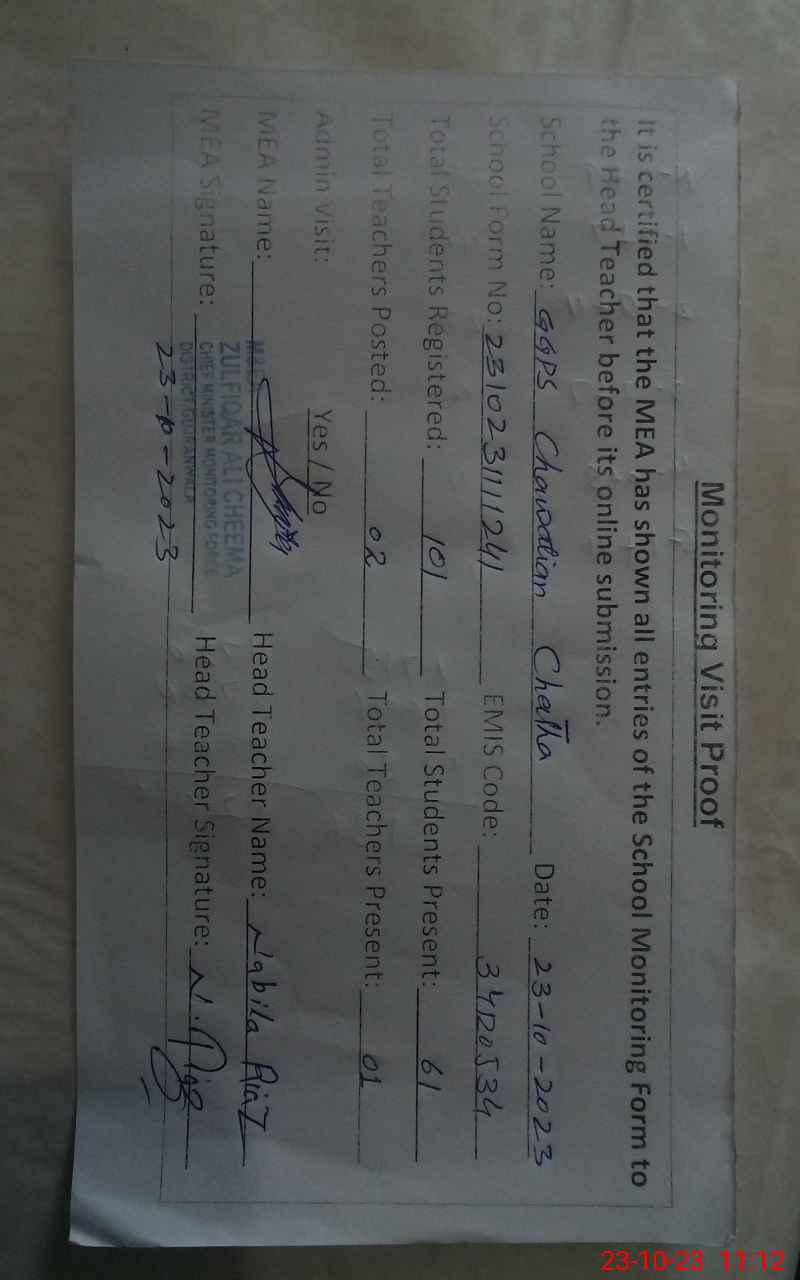 Monitoring Visit Proof
It is certified that the MEA has shown all entries of the School Monitoring Form to
the Head Teacher before its online submission.
School Name: GGPS Chawalian Chatha Date: 23-10-2023
School Form No: 231023111241 EMIS Code: 34120534
Total Students Registered: 101 Total Students Present: 61
Total Teachers Posted: 02 Total Teachers Present: 01
Admin Visit: Yes / No
MEA Name: Head Teacher Name: Nabila Riaz
ZULFIQAR ALI CHEEMA
CHIEF MINISTER MONITORING FORCE
DISTRICT GUJRANWALA
MEA Signature: Head Teacher Signature: N. Riaz
23-10-2023
23-10-23 11:12